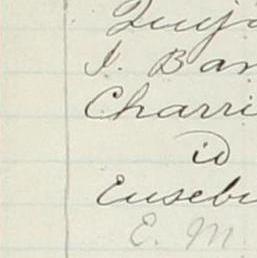 Quij
I. Bar
Charri
id
Eusebi
E. M